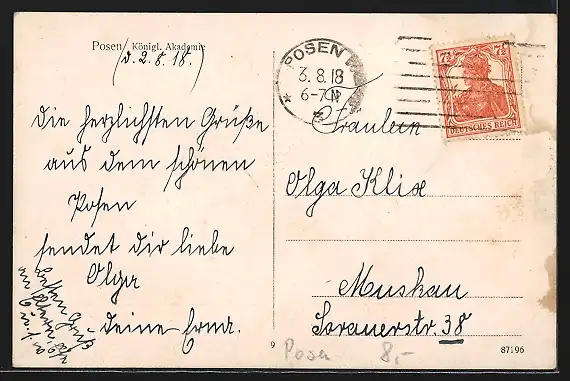 Posen Königl. Akademie
(d. 2.8.18.)
Die herzlichsten Grüße
aus dem schönen
Posen
sendet dir liebe
Olga
deine Erna.
besten Gruß
POSEN
3.8.18
6-7 N
7½ 7½
DEUTSCHES REICH
Fräulein
Olga Klix
Muskau
Sorauerstr. 38
9
Posen 8,-
87196